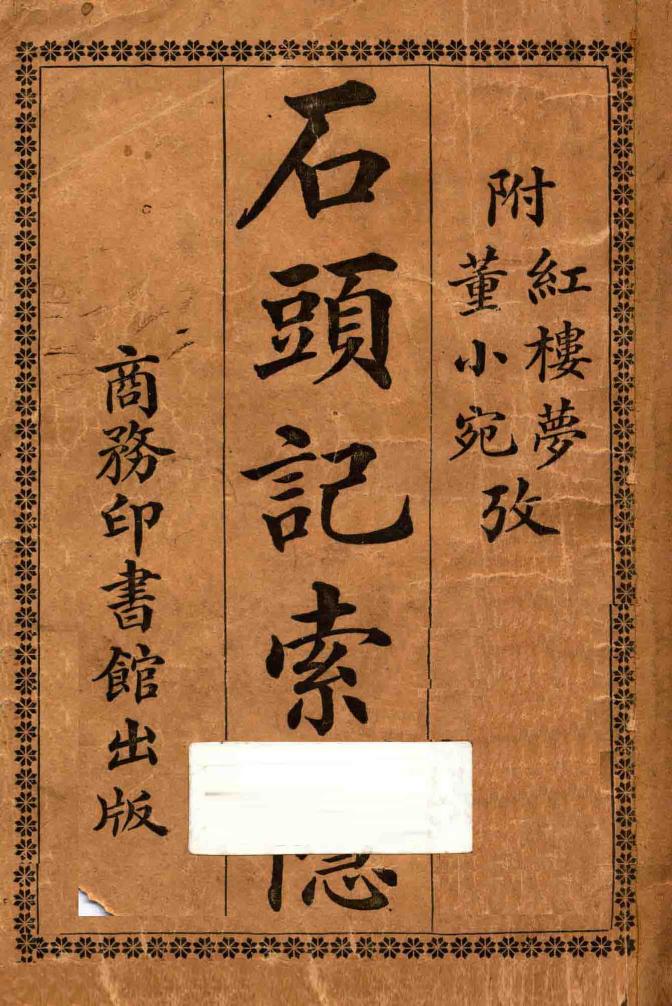 附紅樓夢
董小宛攷
石頭記索隱
商務印書館出版